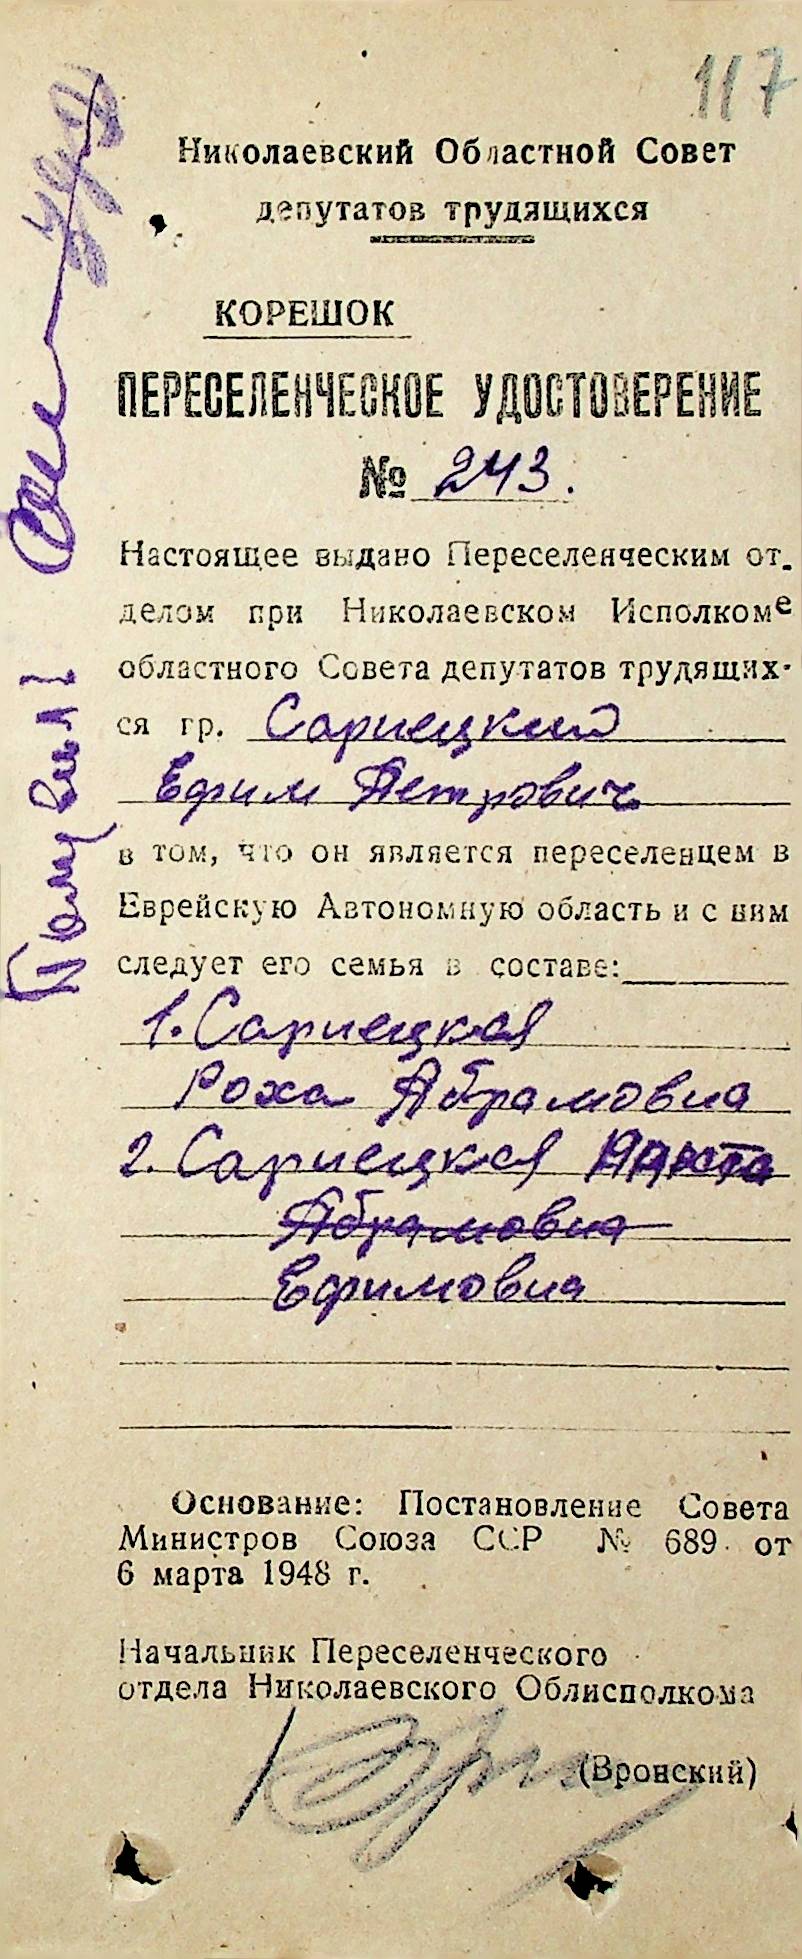 117
Николаевский Областной Совет
депутатов трудящихся
КОРЕШОК
ПЕРЕСЕЛЕНЧЕСКОЕ УДОСТОВЕРЕНИЕ
№ 243.
Настоящее выдано Переселенческим от-
делом при Николаевском Исполкоме
областного Совета депутатов трудящих-
ся гр. Сариецкий
Ефим Петрович
в том, что он является переселенцем в
Еврейскую Автономную область и с ним
следует его семья в составе:
1. Сариецкая
Роха Абрамовна
2. Сариецкая
Абрамовна
Ефимовна
Основание: Постановление Совета
Министров Союза ССР № 689 от
6 марта 1948 г.
Начальник Переселенческого
отдела Николаевского Облисполкома
(Вронский)
Получил